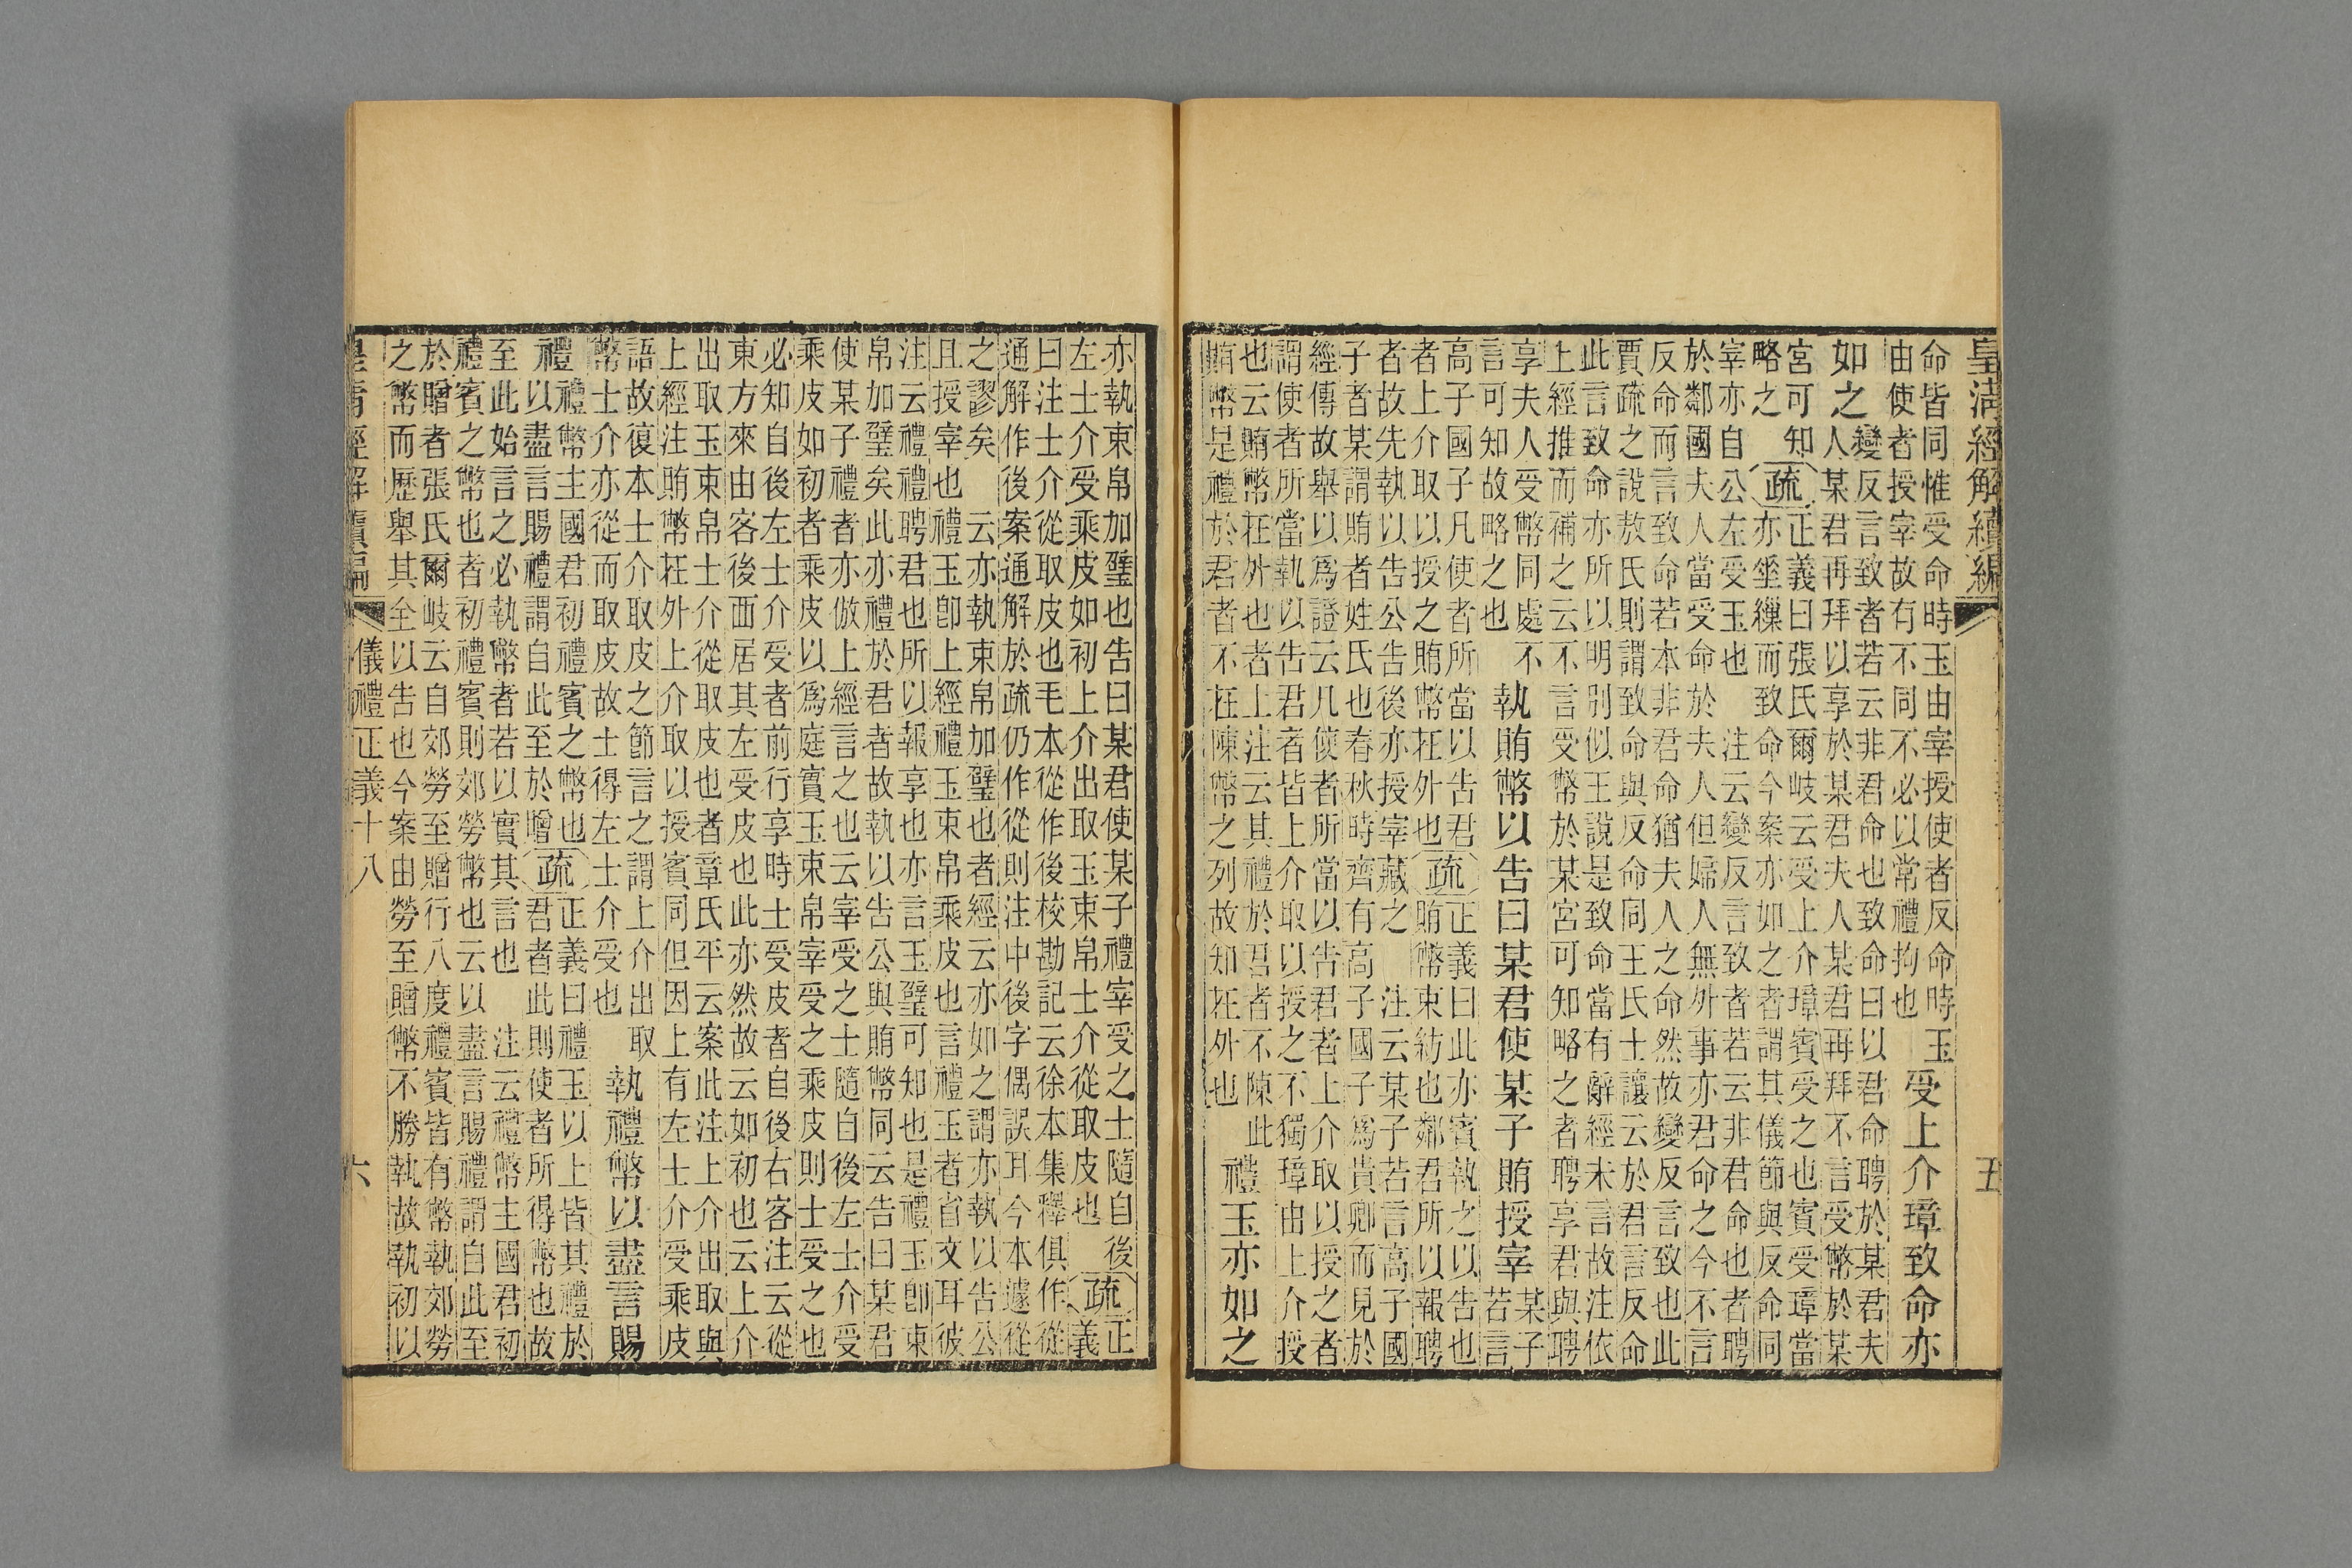 皇清經解續編　五
命皆同惟受命時玉由宰授使者反命時玉
由使者授宰故有不同不必以常禮拘也
受上介璋致命亦
如之
變反言致者若云非君命也致命曰以君命聘於某君夫
人某君再拜以享於某君夫人某君再拜不言受幣於某
宮可知
略之
疏
正義曰張氏爾岐云受上介璋賓受之也賓受璋當
亦坐纁而致命今案亦如之者謂其儀節與反命同
宰亦自公左受玉也　注云變反言致者若云非君命也者聘
於鄰國夫人當受命於夫人但婦人無外事亦君命之今不言
反命而言致命若本非君命猶夫人之命然故變反言致也此
賈疏之說敖氏則謂致命與反命同王氏士讓云於君言反命
此言致命亦所以明別似王說是致命當有辭經未言故注依
上經推而補之云不言受幣於某宮可知略之者聘享君與聘
享夫人受幣同處不
言可知故略之也
執賄幣以告曰某君使某子賄授宰
某子
若言
高子國子凡使者所當以告君
者上介取以授之賄幣在外也
疏
正義曰此亦賓執之以告也
賄幣束紡也鄰君所以報聘
者故先執以告公告後亦授宰藏之　注云某子若言高子國
子者某謂賄者姓氏也春秋時齊有高子國子爲貴卿而見於
經傳故舉以爲證云凡使者所當以告君者上介取以授之者
謂使者所當執以告君者皆上介取以授之不獨璋由上介授
也云賄幣在外也者上注云其禮於君者不陳此
賄幣是禮於君者不在陳幣之列故知在外也
禮玉亦如之
亦執束帛加璧也告曰某君使某子禮宰受之士隨自後
左士介受乘皮如初上介出取玉束帛士介從取皮也
疏
正
義
曰注士介從取皮也毛本從作後校勘記云徐本集釋俱作從
通解作後案通解於疏仍作從則注中後字偶誤耳今本遽從
之謬矣　云亦執束帛加璧也者經云亦如之謂亦執以告公
且授宰也　禮玉卽上經禮玉束帛乘皮也言禮玉者省文耳彼
注云禮禮聘君也所以報享也亦言玉璧可知也是禮玉卽束
帛加璧矣此亦禮於君者故執以告公與賄幣同云告曰某君
使某子禮者亦倣上經言之也云宰受之士隨自後左士介受
乘皮如初者乘皮以爲庭實玉束帛宰受之乘皮則士受之也
必知自後左士介受者前行享時士受皮者自後右客注云從
東方來由客後西居其左受皮也此亦然故云如初也云上介
出取玉束帛士介從取皮也者章氏平云案此注上介出取與
上經注賄幣在外上介取以授賓同但因上有左士介受乘皮
語故復本士介取皮之節言之謂上介出取
幣士介亦從而取皮故士得左士介受也
執禮幣以盡言賜
禮
禮幣主國君初禮賓之幣也
以盡言賜禮謂自此至於贈
疏
正義曰禮玉以上皆其禮於
君者此則使者所得幣也故
至此始言之必執幣者若以實其言也　注云禮幣主國君初
禮賓之幣也者初禮賓則郊勞幣也云以盡言賜禮謂自此至
於贈者張氏爾岐云自郊勞至贈行八度禮賓皆有幣執郊勞
之幣而歷舉其全以告也今案由勞至贈幣不勝執故執初以
皇清經解續編　儀禮正義十八　六